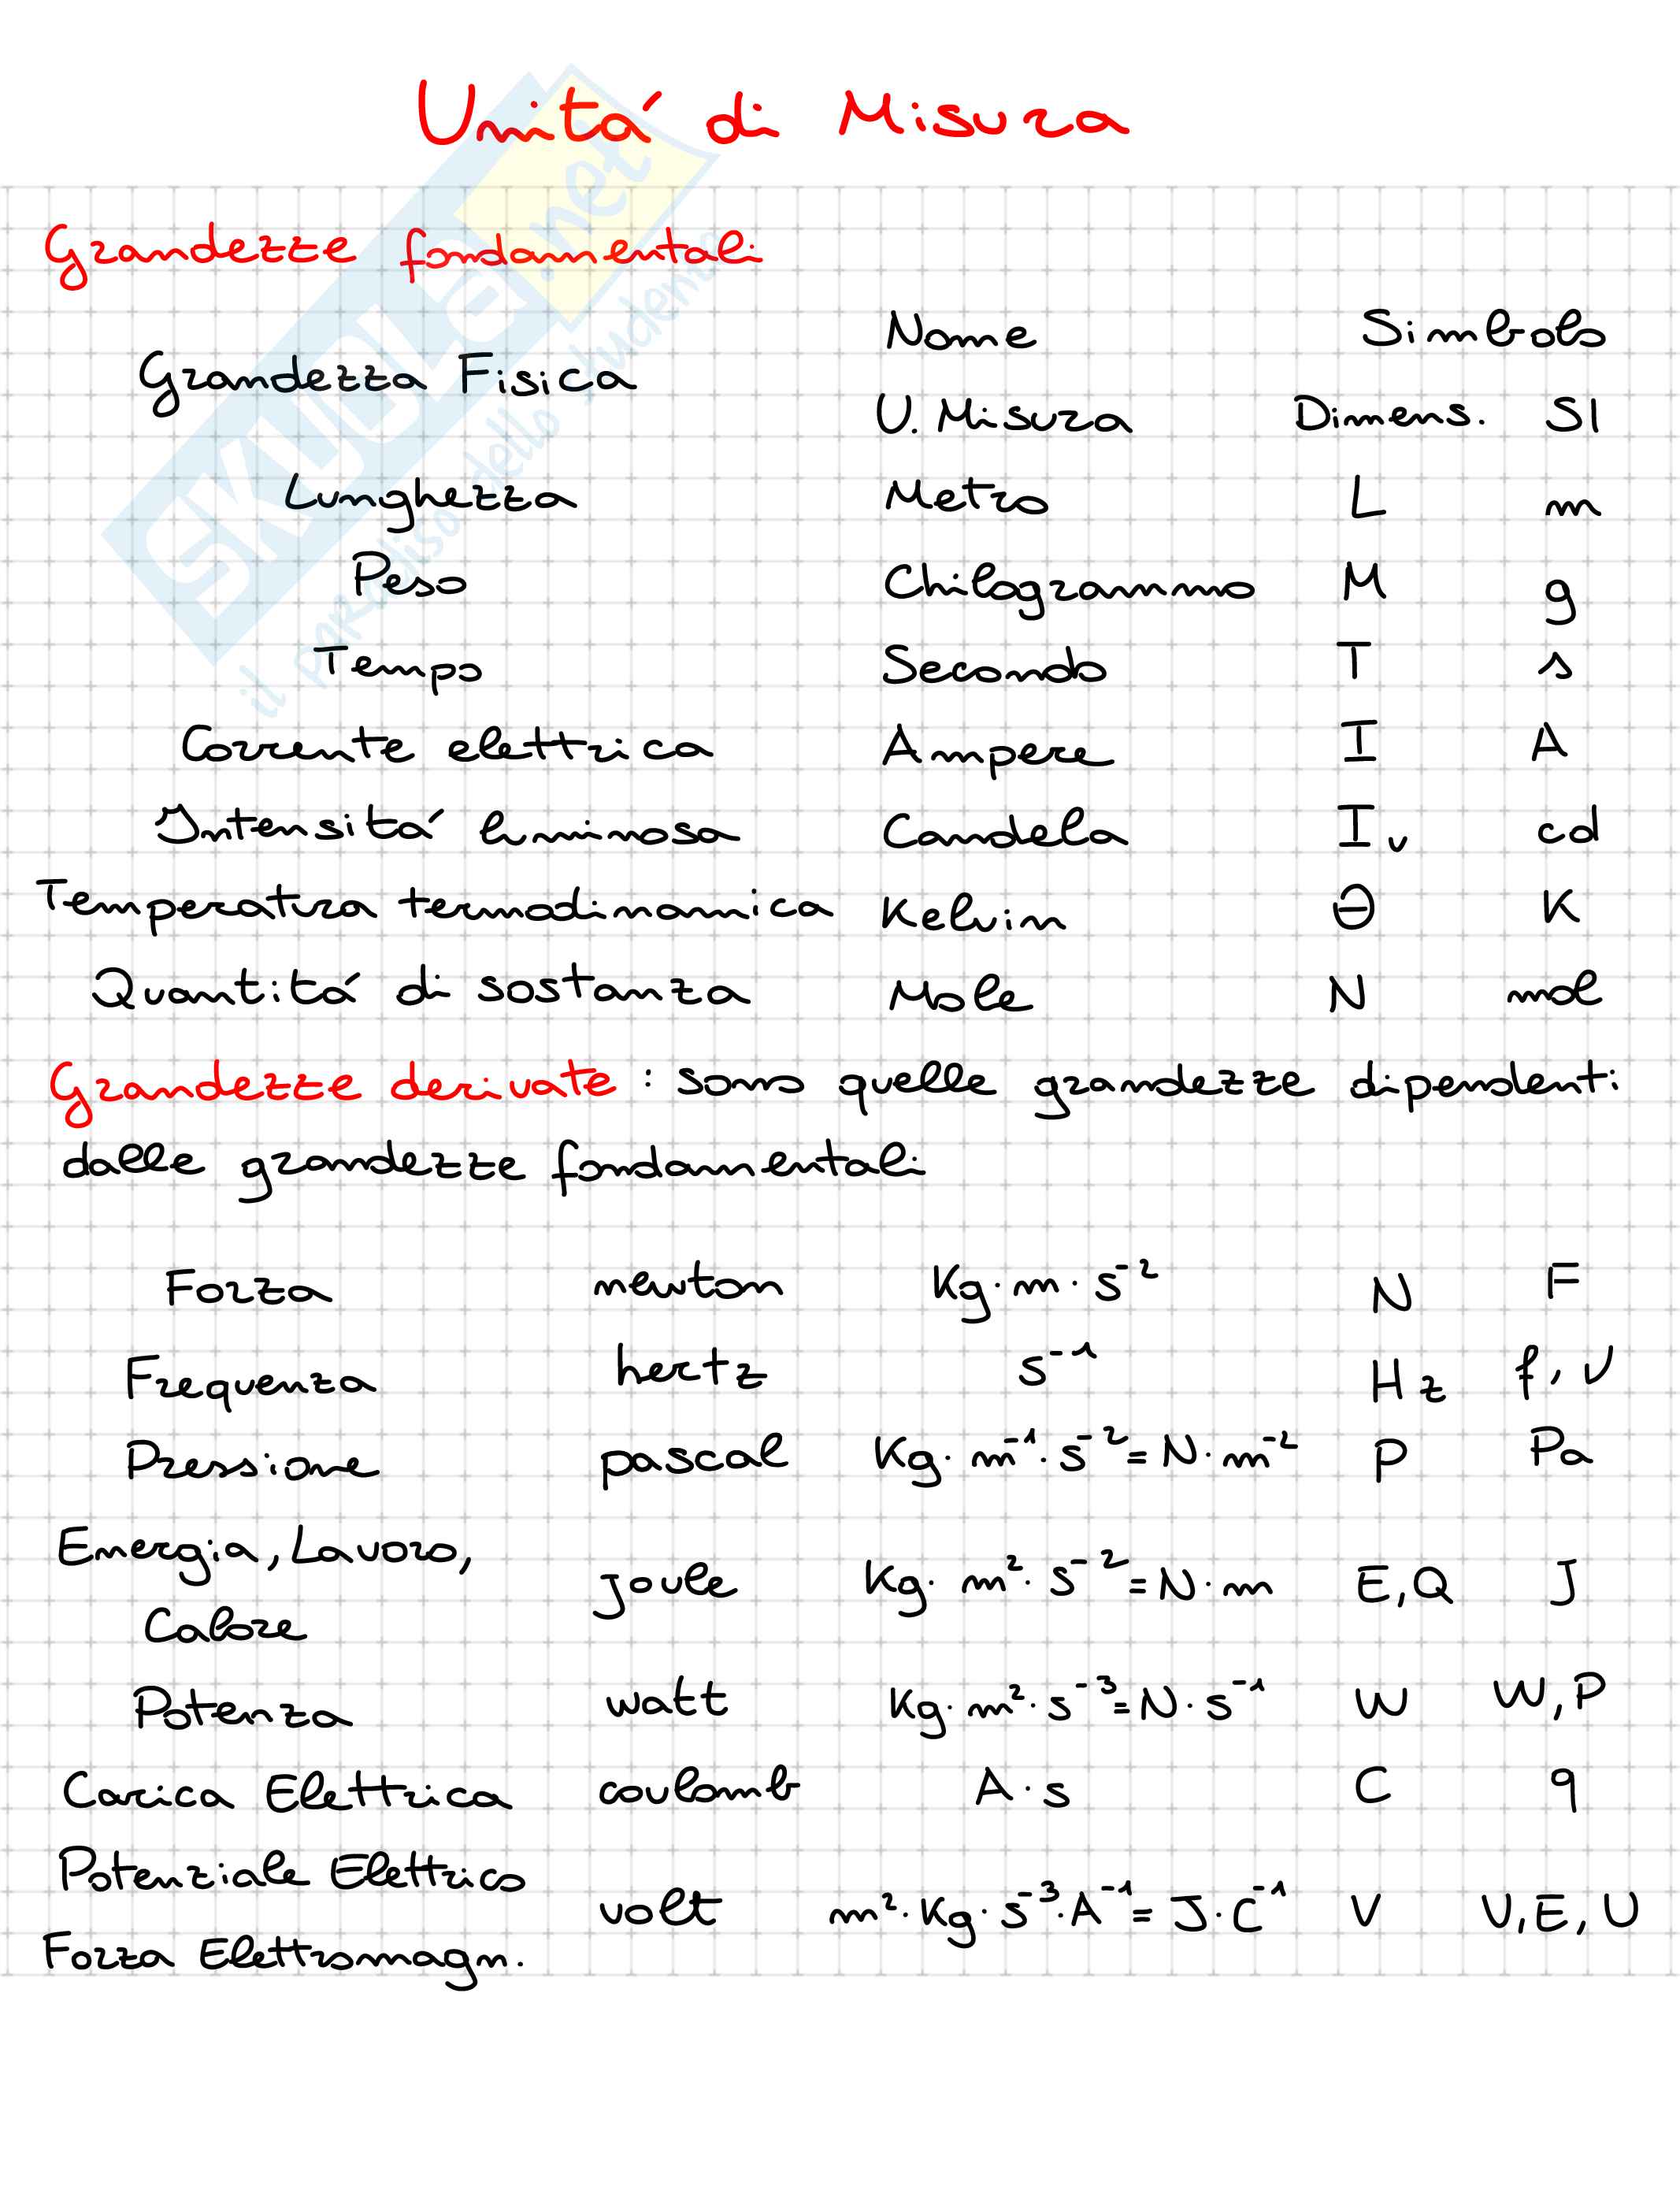 Unitá di Misura
Grandezze fondamentali
Nome Simbolo
Grandezza Fisica
U. Misura Dimens. SI
Lunghezza Metro L m
Peso Chilogrammo M g
Tempo Secondo T s
Corrente elettrica Ampere I A
Intensitá luminosa Candela Iv cd
Temperatura termodinamica Kelvin Θ K
Quantitá di sostanza Mole N mol
Grandezze derivate : sono quelle grandezze dipendenti
dalle grandezze fondamentali
Forza newton Kg·m·s⁻² N F
Frequenza hertz s⁻¹ Hz f, ν
Pressione pascal Kg·m⁻¹·s⁻²=N·m⁻² P Pa
Energia, Lavoro,
Calore joule Kg·m²·s⁻²=N·m E,Q J
Potenza watt Kg·m²·s⁻³=N·s⁻¹ W W,P
Carica Elettrica coulomb A·s C q
Potenziale Elettrico
volt m²·Kg·s⁻³·A⁻¹=J·C⁻¹ V V,E,U
Forza Elettromagn.
SKUOLA.net
il PARadiso dello studente